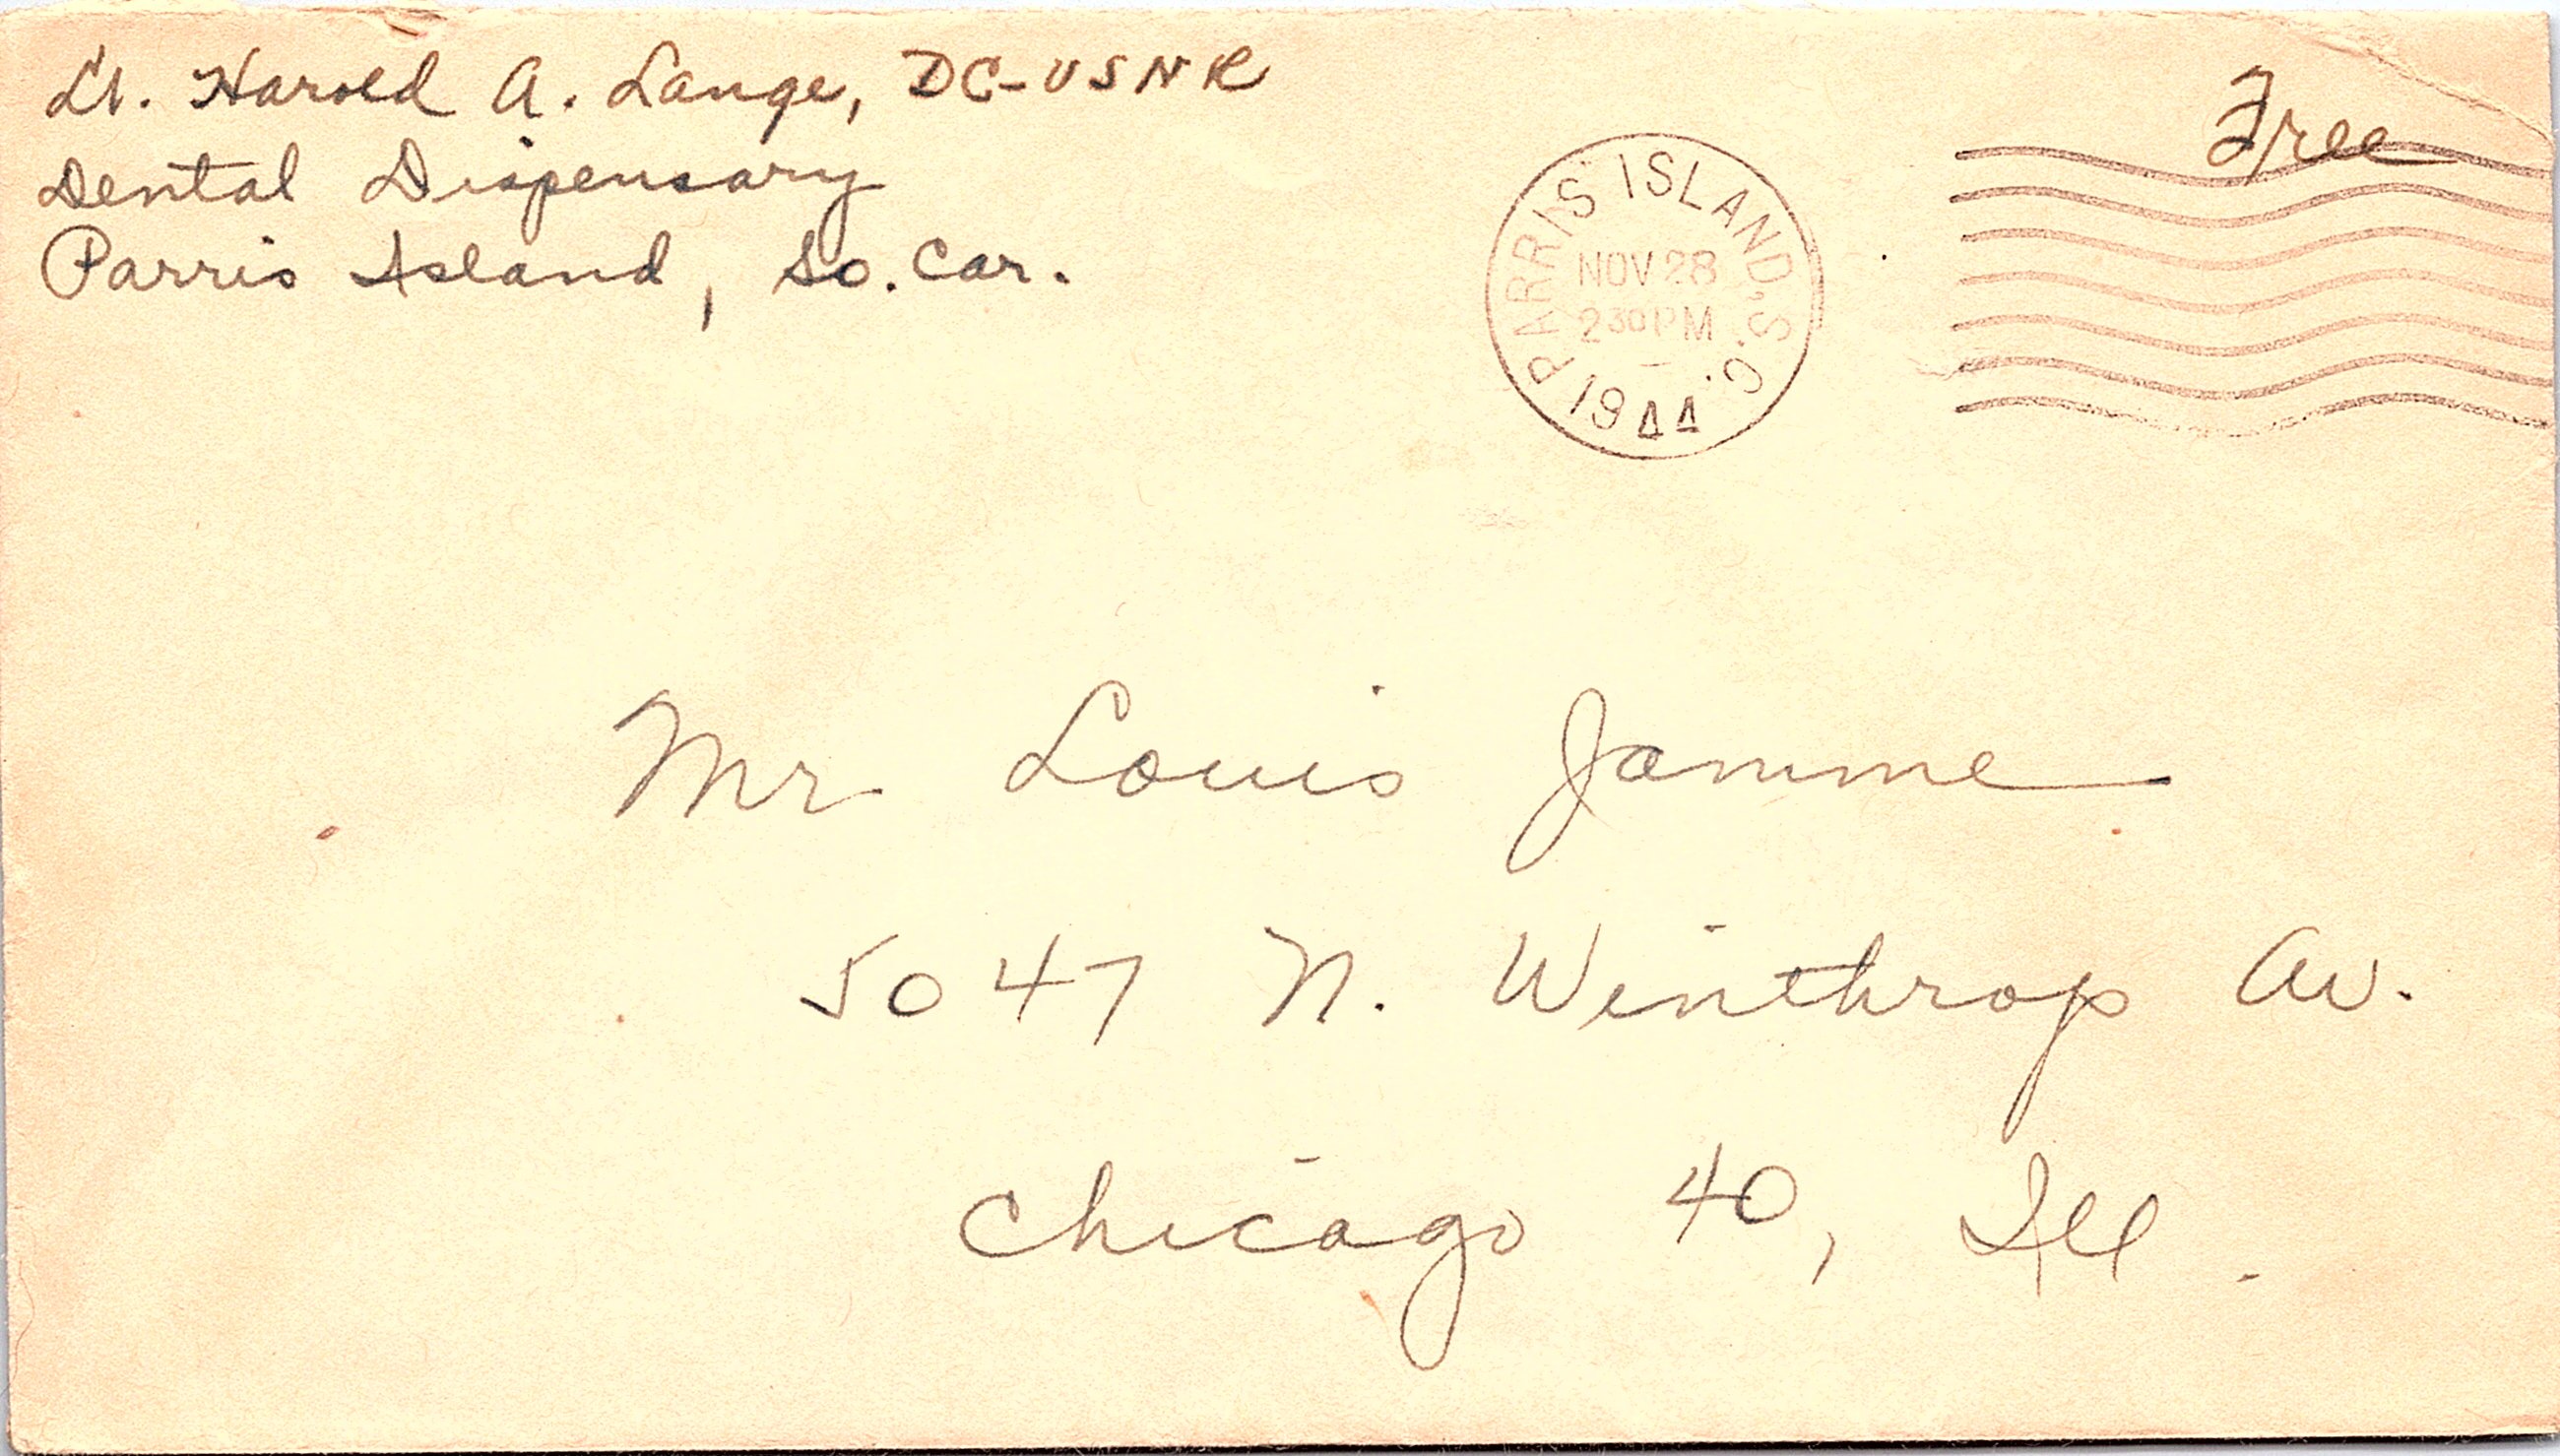 Lt. Harold A. Lange, DC-USNR
Dental Dispensary
Parris Island, So. Car.
Free
PARRIS ISLAND, S.C.
NOV 28
2 30 PM
1944
Mr Louis Jamme
5047 N. Winthrop Av.
Chicago 40, Ill.